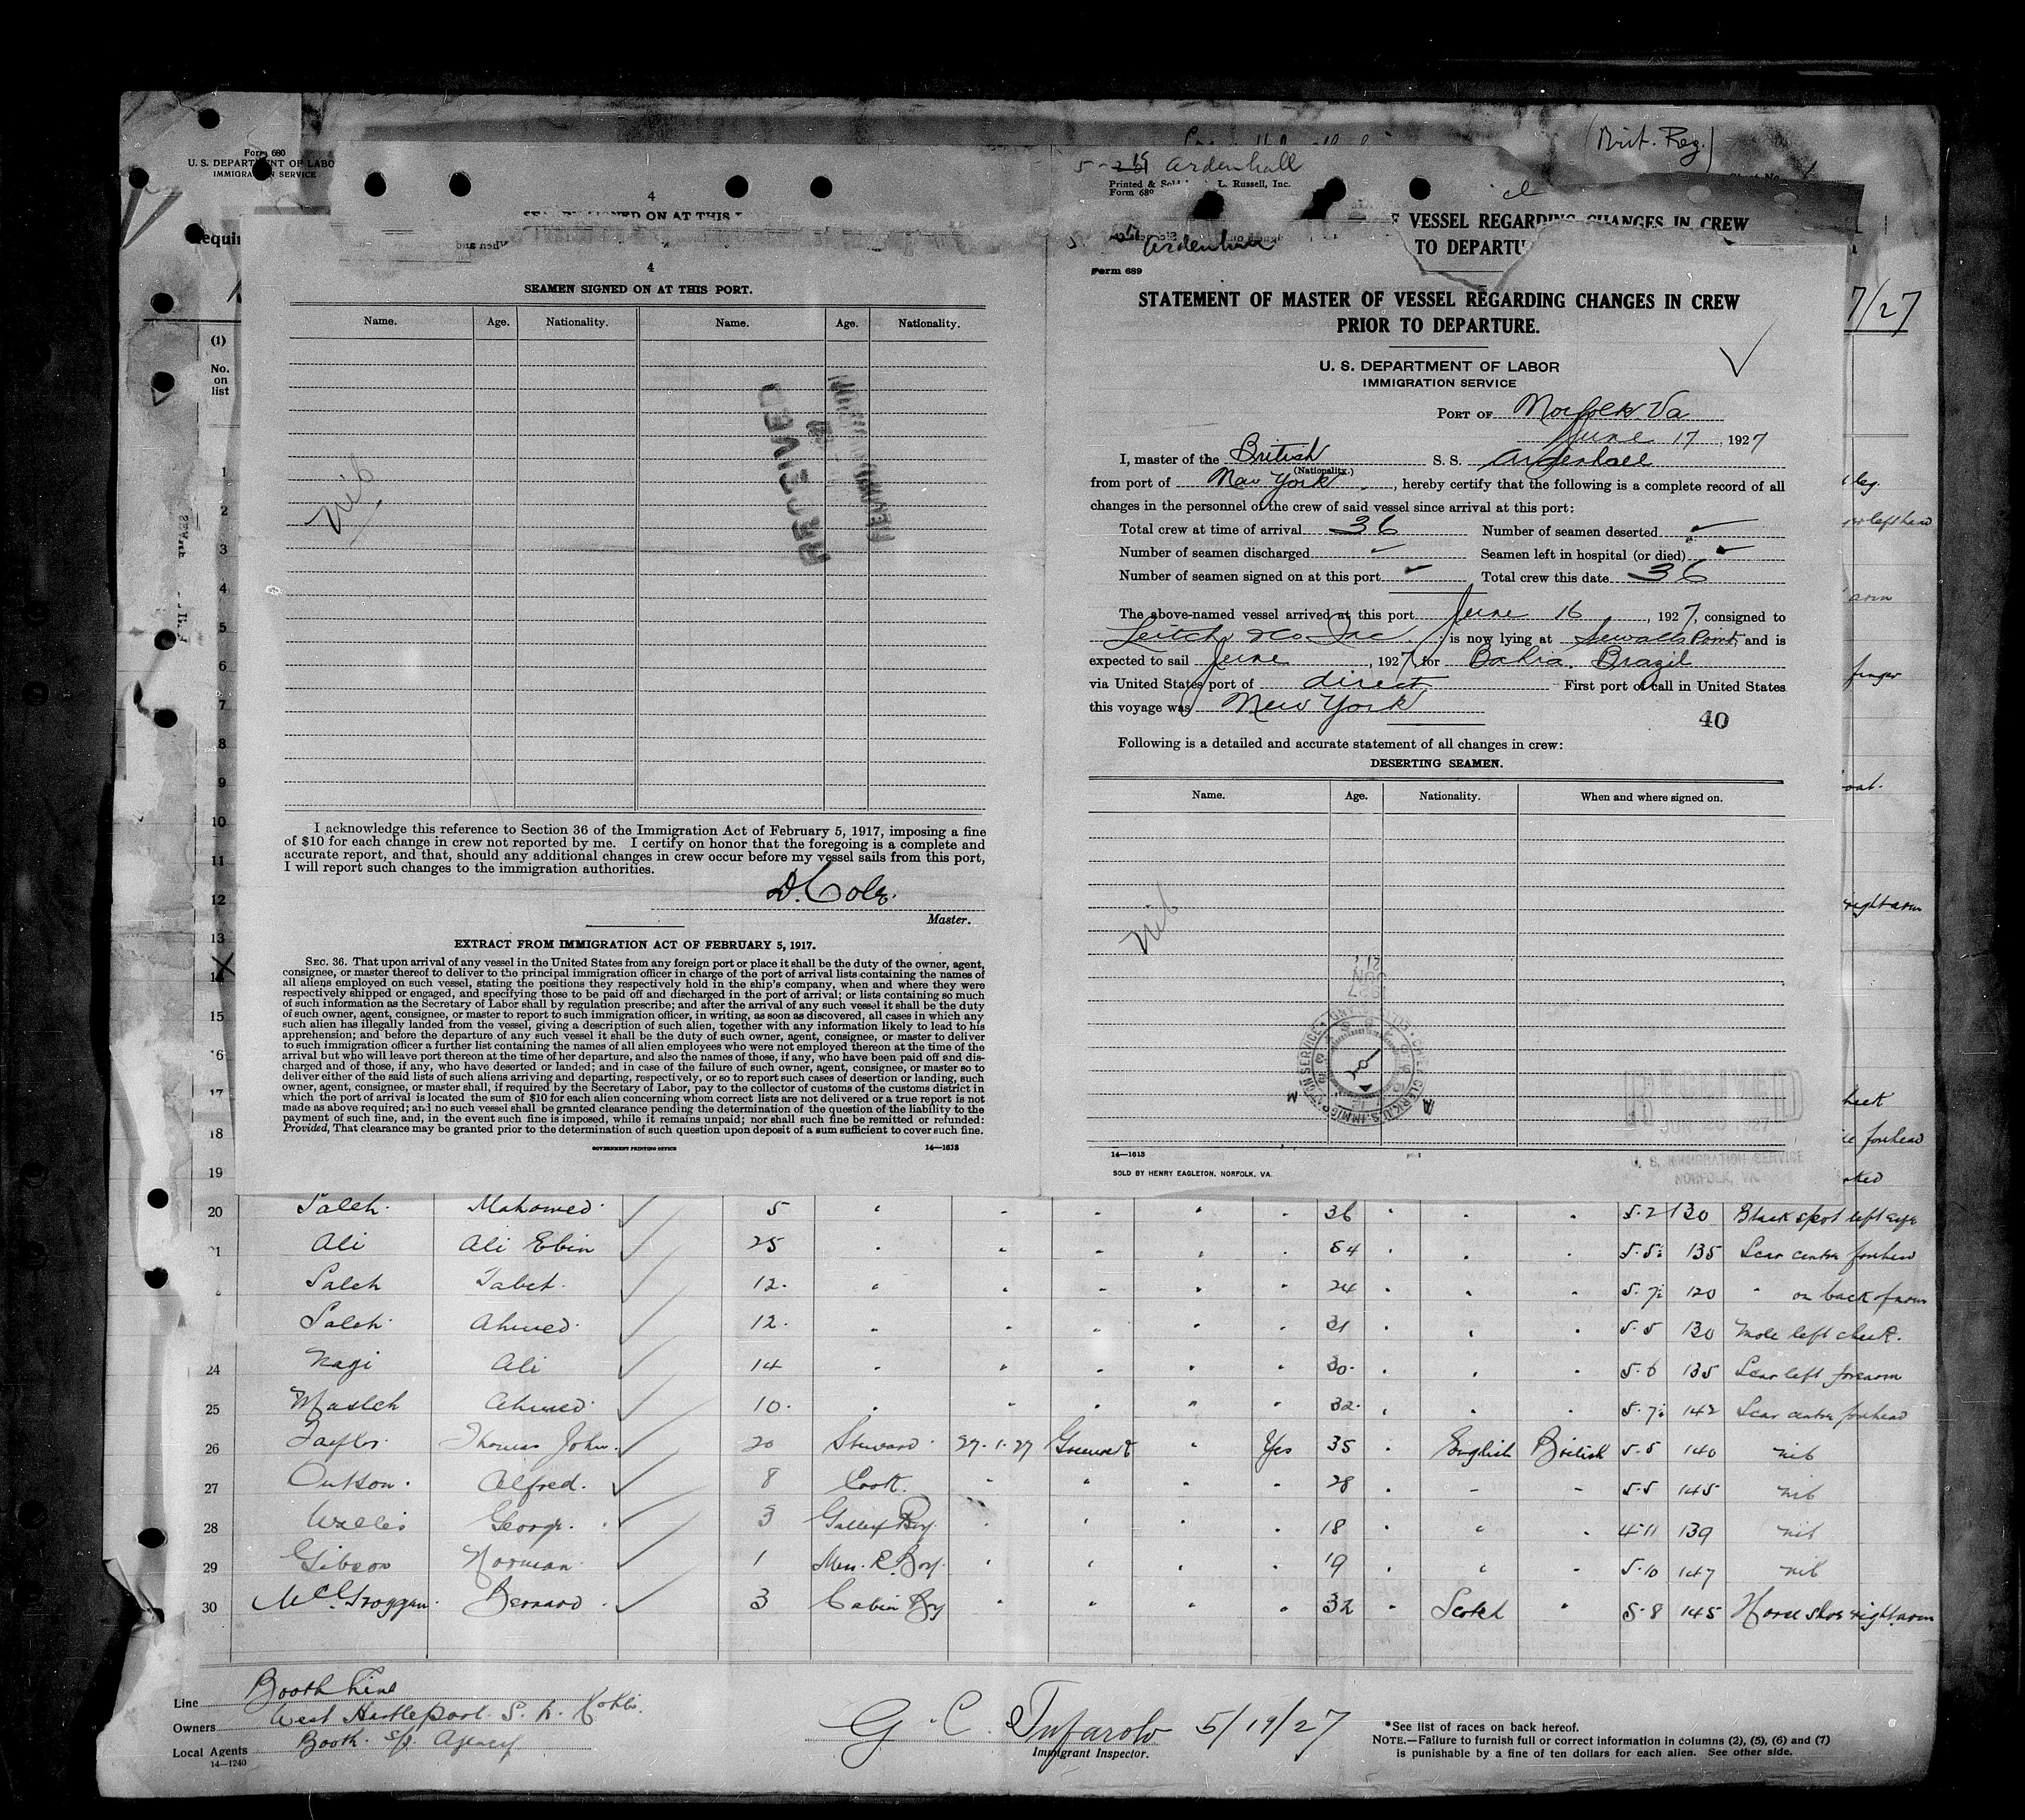 (Brit. Reg.)
Form 680
U. S. DEPARTMENT OF LABO
IMMIGRATION SERVICE
5- Ardenhall
Printed & Sol L. Russell, Inc.
Form 689
4
F VESSEL REGARDING CHANGES IN CREW
TO DEPARTU
Ardenhall
7/27
(1)
No.
on
list
4
SEAMEN SIGNED ON AT THIS PORT.
Name. Age. Nationality. Name. Age. Nationality.
nil
RECEIVED
I acknowledge this reference to Section 36 of the Immigration Act of February 5, 1917, imposing a fine
of $10 for each change in crew not reported by me. I certify on honor that the foregoing is a complete and
accurate report, and that, should any additional changes in crew occur before my vessel sails from this port,
I will report such changes to the immigration authorities.
D. Cole.
Master.
EXTRACT FROM IMMIGRATION ACT OF FEBRUARY 5, 1917.
SEC. 36. That upon arrival of any vessel in the United States from any foreign port or place it shall be the duty of the owner, agent,
consignee, or master thereof to deliver to the principal immigration officer in charge of the port of arrival lists containing the names of
all aliens employed on such vessel, stating the positions they respectively hold in the ship's company, when and where they were
respectively shipped or engaged, and specifying those to be paid off and discharged in the port of arrival; or lists containing so much
of such information as the Secretary of Labor shall by regulation prescribe; and after the arrival of any such vessel it shall be the duty
of such owner, agent, consignee, or master to report to such immigration officer, in writing, as soon as discovered, all cases in which any
such alien has illegally landed from the vessel, giving a description of such alien, together with any information likely to lead to his
apprehension; and before the departure of any such vessel it shall be the duty of such owner, agent, consignee, or master to deliver
to such immigration officer a further list containing the names of all alien employees who were not employed thereon at the time of the
arrival but who will leave port thereon at the time of her departure, and also the names of those, if any, who have been paid off and dis-
charged and of those, if any, who have deserted or landed; and in case of the failure of such owner, agent, consignee, or master so to
deliver either of the said lists of such aliens arriving and departing, respectively, or so to report such cases of desertion or landing, such
owner, agent, consignee, or master shall, if required by the Secretary of Labor, pay to the collector of customs of the customs district in
which the port of arrival is located the sum of $10 for each alien concerning whom correct lists are not delivered or a true report is not
made as above required; and no such vessel shall be granted clearance pending the determination of the question of the liability to the
payment of such fine, and, in the event such fine is imposed, while it remains unpaid; nor shall such fine be remitted or refunded:
Provided, That clearance may be granted prior to the determination of such question upon deposit of a sum sufficient to cover such fine.
GOVERNMENT PRINTING OFFICE 14—1613
Form 689
STATEMENT OF MASTER OF VESSEL REGARDING CHANGES IN CREW
PRIOR TO DEPARTURE.
U. S. DEPARTMENT OF LABOR
IMMIGRATION SERVICE
PORT OF Norfolk Va
June 17, 1927
I, master of the British S. S. Ardenhall
(Nationality.)
from port of New York, hereby certify that the following is a complete record of all
changes in the personnel of the crew of said vessel since arrival at this port:
Total crew at time of arrival 36 Number of seamen deserted
Number of seamen discharged Seamen left in hospital (or died)
Number of seamen signed on at this port Total crew this date 36
The above-named vessel arrived at this port June 16, 1927, consigned to
Leitch & Co Inc; is now lying at Sewalls Point, and is
expected to sail June, 1927, for Bahia, Brazil
via United States port of direct First port of call in United States
this voyage was New York
40
Following is a detailed and accurate statement of all changes in crew:
DESERTING SEAMEN.
Name. Age. Nationality. When and where signed on.
nil
RECEIVED
U. S. IMMIGRATION SERVICE
NORFOLK, VA.
14—1613
SOLD BY HENRY EAGLETON, NORFOLK, VA.
1
2
3
4
5
6
7
8
9
10
11
12
13
14
15
16
17
18
19
20 Saleh Mahomed 5 36 5-2 130 Black spot left eye
21 Ali Ali Ebin 25 54 5-5½ 135 Scar centre forehead
Saleh Tabet 12 24 5-7½ 120 " on back of arm
Saleh Ahmed 12 31 5-5 130 Mole left cheek.
24 Nagi Ali 14 30 5-6 135 Scar left forearm
25 Masleh Ahmed 10 32 5-7½ 142 Scar centre forehead
26 Taylor Thomas John 20 Steward 27-1-27 Yes 35 English British 5-5 140 nil
27 Alfred 8 Cook 28 5-5 145 nil
28 Wallis George 3 Galley Boy 18 4-11 139 nil
29 Gibson Norman 1 Mess R. Boy 19 5-10 147 nil
30 McGroggan Bernard 3 Cabin Boy 32 Scotch 5-8 145 Horse shoe right arm
Line Booth Line
Owners West Hartlepool S. N.
Local Agents Booth S/S Agency
14—1240
G. C. Tufarolo 5/19/27
Immigrant Inspector.
*See list of races on back hereof.
NOTE.—Failure to furnish full or correct information in columns (2), (5), (6) and (7)
is punishable by a fine of ten dollars for each alien. See other side.